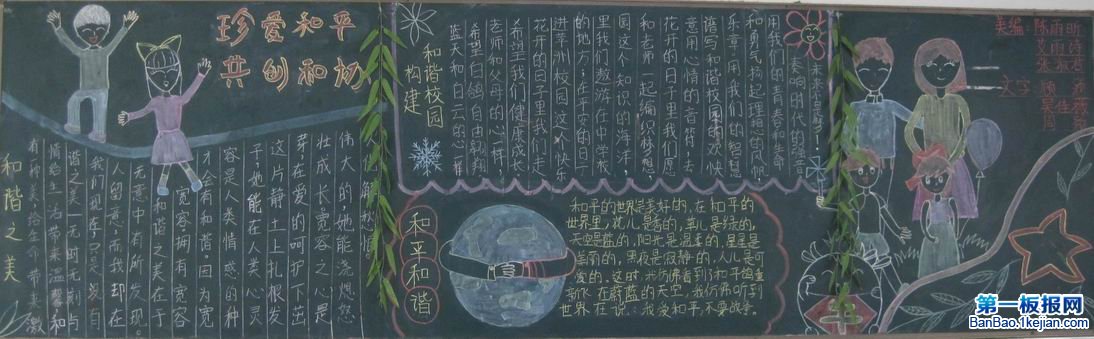 珍爱和平
共创和协
和谐之美
有一种美给生命带来激
情给生活带来温馨,和
谐之美一无时无刻与
我们现存,只是没有
人留意,而我却在
无意中有所发现。
和谐之美在于
宽容拥有宽容
才会有和谐。因为宽
容是人类情感的种
子,她能在人类心灵
这片静土上扎根发
芽,在爱的呵护下茁
壮成长宽容之心是
伟大的她能浇
构建
和谐校园
蓝天和白云的心一样
希望白鸽自由翱翔
老师和父母的心一样
希望我们健康成长
花开的日子里我们走
进莘洲校园这个快乐
的地方;在平安的日子
里我们遨游在中学校
园这个知识的海洋;
和老师一起编织梦想.
花开的日子里我们愿
意用心情的音符,去
谱写和谐校园的欢快
乐章;用我们的智慧
和勇气扬起理想的风帆
用我们的青春和生命
奏响时代的强音
和平和谐
和平的世界是美好的,在和平的
世界里,花儿是香的,草儿是绿的,
天空是蓝的,阳光是温柔的,星星是
美丽的,黑夜是寂静的,人儿是可
爱的。这时,我仿佛看到了和平鸽重
新飞在蔚蓝的天空,我仿佛听到
世界在说:我爱和平,不要战争。
美编:陈雨昕
文字:
平
第一板报网
BanBao.1kejian.com